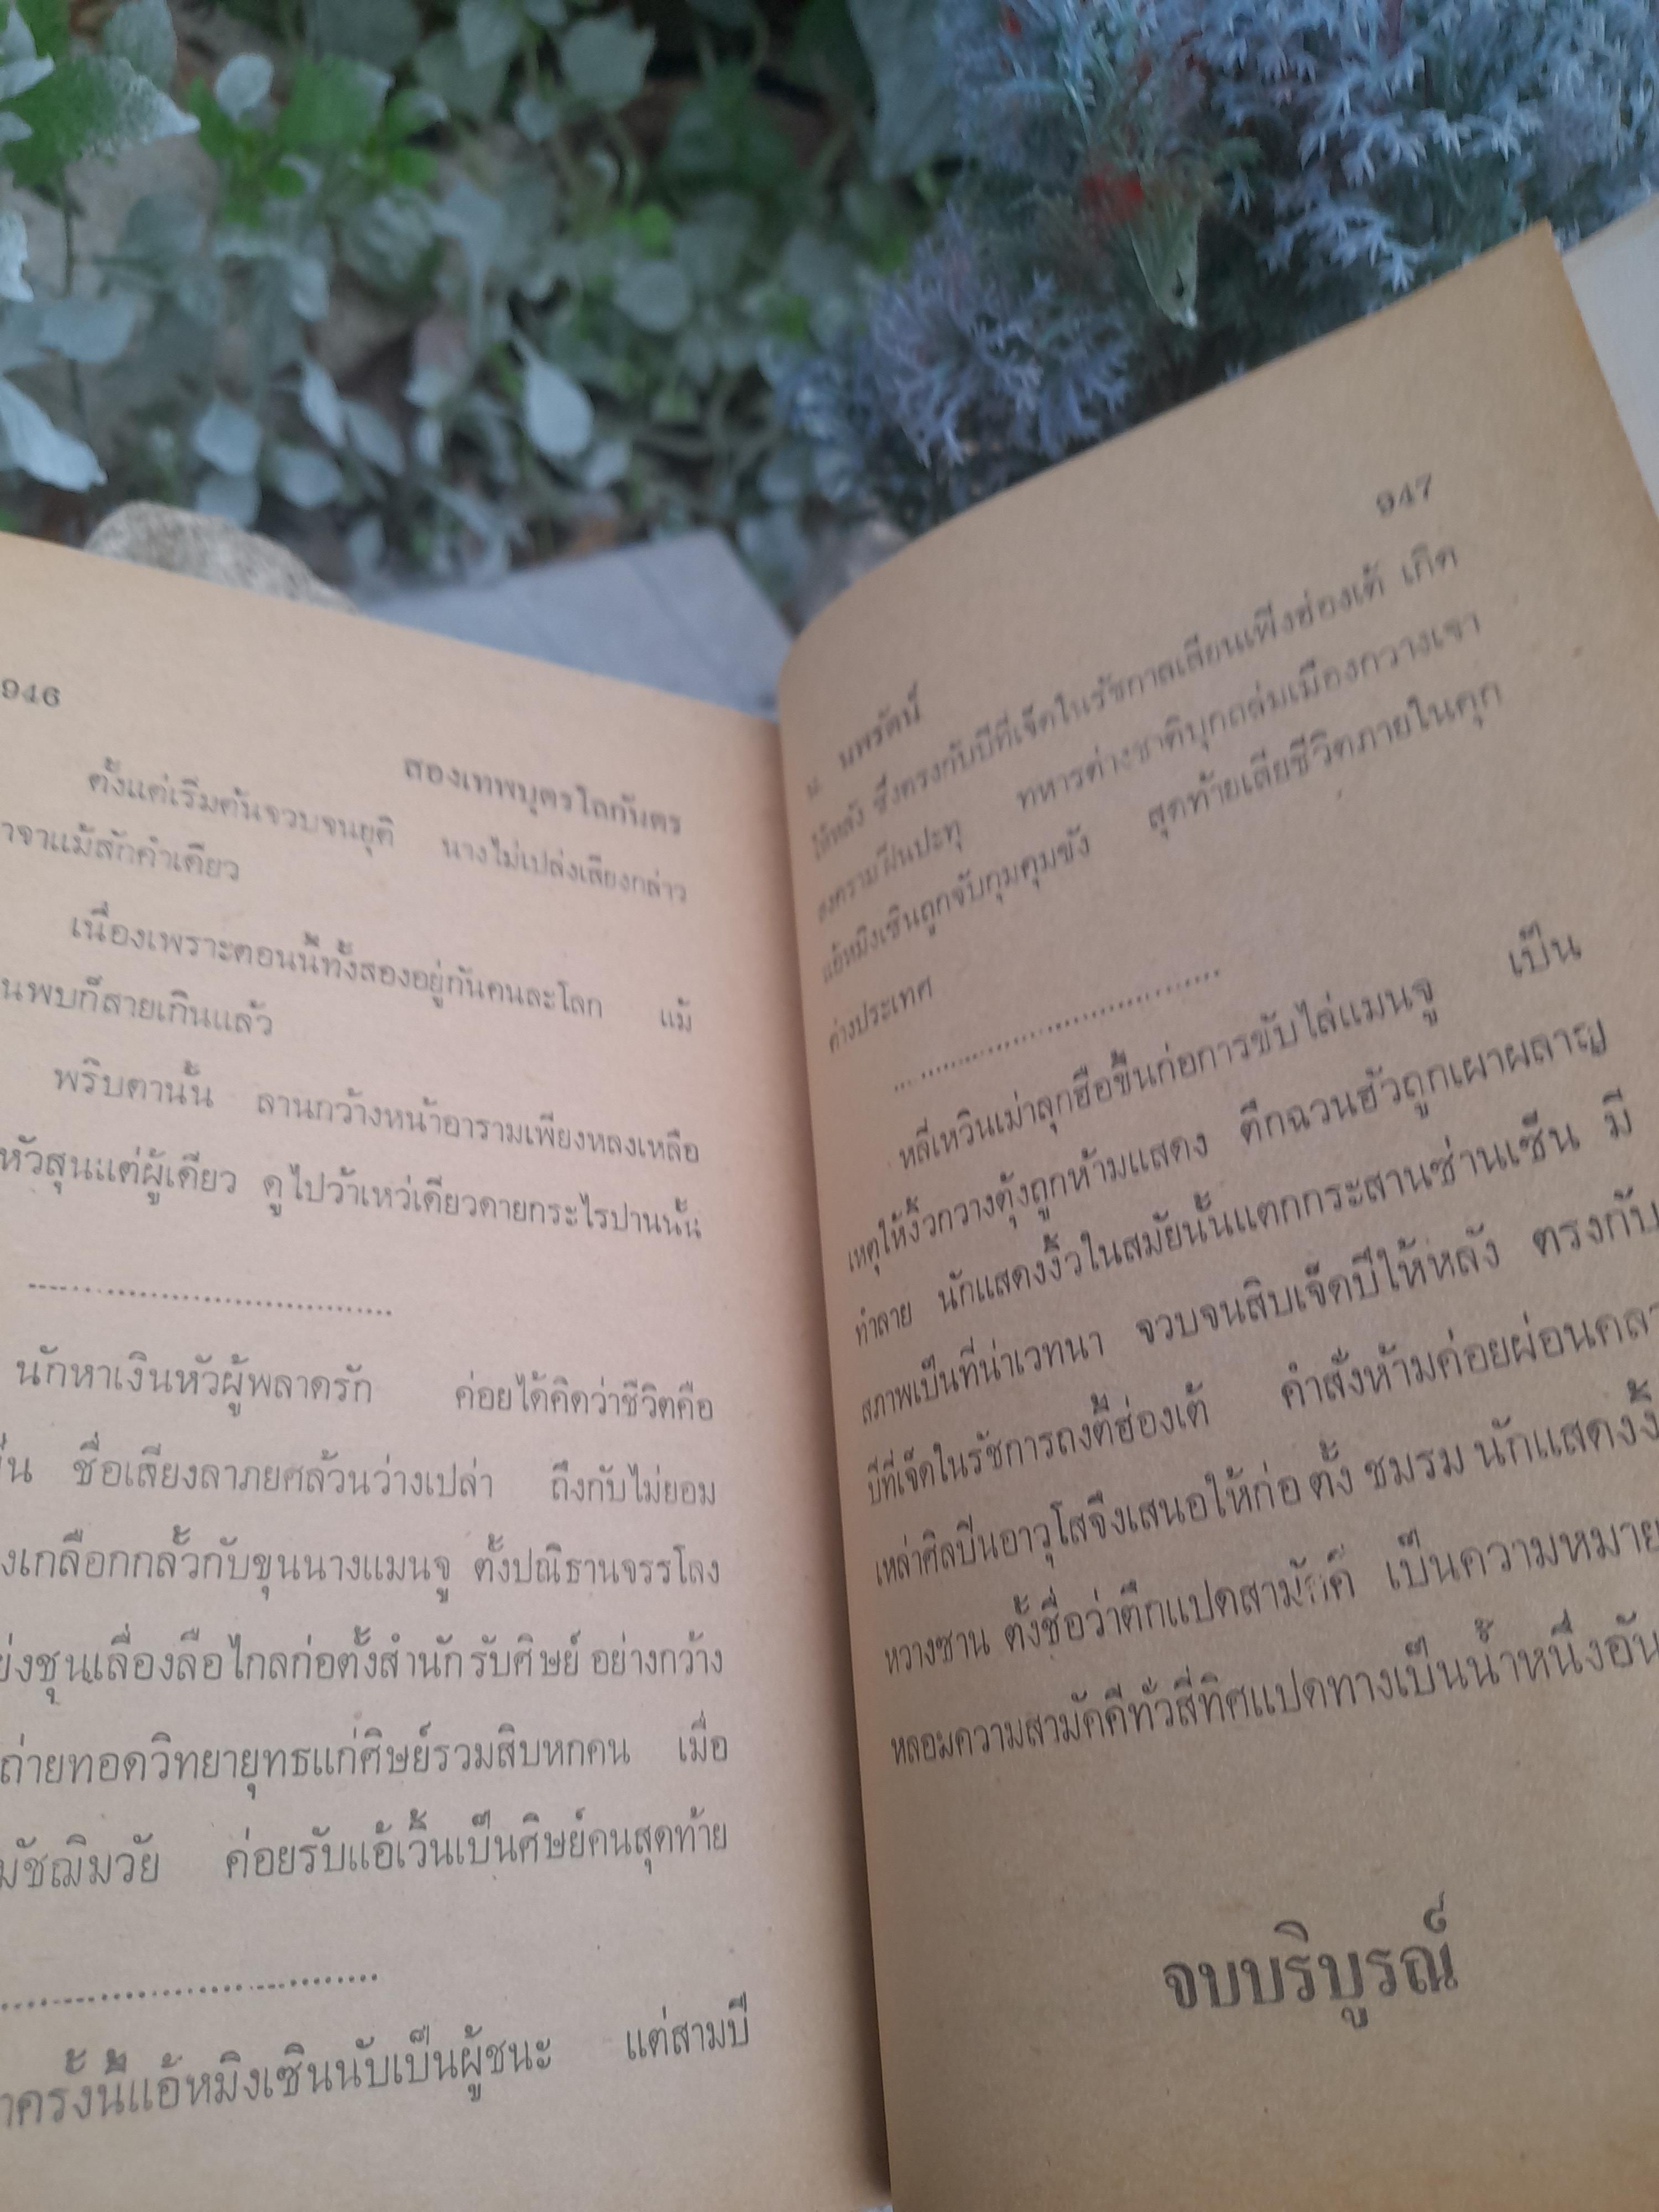 946
สองเทพบุตรโลกันตร
ตั้งแต่เริ่มต้นจวบจนยุติ นางไม่เปล่งเสียงกล่าว
าจาแม้สักคำเดียว
เนื่องเพราะตอนนี้ทั้งสองอยู่กันคนละโลก แม้
นพบก็สายเกินแล้ว
พริบตานั้น ลานกว้างหน้าอารามเพียงหลงเหลือ
หัวสุนแต่ผู้เดียว ดูไปว้าเหว่เดียวดายกระไรปานนั้น
นักหาเงินหัวผู้พลาดรัก ค่อยได้คิดว่าชีวิตคือ
ชื่อเสียงลาภยศล้วนว่างเปล่า ถึงกับไม่ยอม
งเกลือกกลั้วกับขุนนางแมนจู ตั้งปณิธานจรรโลง
ย่งชุนเลื่องลือไกลก่อตั้งสำนักรับศิษย์อย่างกว้าง
ถ่ายทอดวิทยายุทธแก่ศิษย์รวมสิบหกคน เมื่อ
มัชฌิมวัย ค่อยรับแอ้เว้นเป็นศิษย์คนสุดท้าย
าครั้งนี้แอ้หมิงเซินนับเป็นผู้ชนะ แต่สามปี
947
น. นพรัตน์
ให้หลัง ซึ่งตรงกับปีที่เจ็ดในรัชกาลเสียนเฟิงฮ่องเต้ เกิด
สงครามฝิ่นปะทุ ทหารต่างชาติบุกถล่มเมืองกวางเจา
แอ้หมิงเซินถูกจับกุมคุมขัง สุดท้ายเสียชีวิตภายในคุก
ต่างประเทศ
หลี่เหวินเม่าลุกฮือขึ้นก่อการขับไล่แมนจู เป็น
เหตุให้งิ้วกวางตุ้งถูกห้ามแสดง ตึกฉวนฮัวถูกเผาผลาญ
ทำลาย นักแสดงงิ้วในสมัยนั้นแตกกระสานซ่านเซ็น มี
สภาพเป็นที่น่าเวทนา จวบจนสิบเจ็ดปีให้หลัง ตรงกับ
ปีที่เจ็ดในรัชการถงตี้ฮ่องเต้ คำสั่งห้ามค่อยผ่อนคลา
เหล่าศิลปินอาวุโสจึงเสนอให้ก่อตั้ง ชมรม นักแสดงงิ้
หวางซาน ตั้งชื่อว่าตึกแปดสามัคคี เป็นความหมาย
หลอมความสามัคคีทั่วสี่ทิศแปดทางเป็นน้ำหนึ่งอัน
จบบริบูรณ์